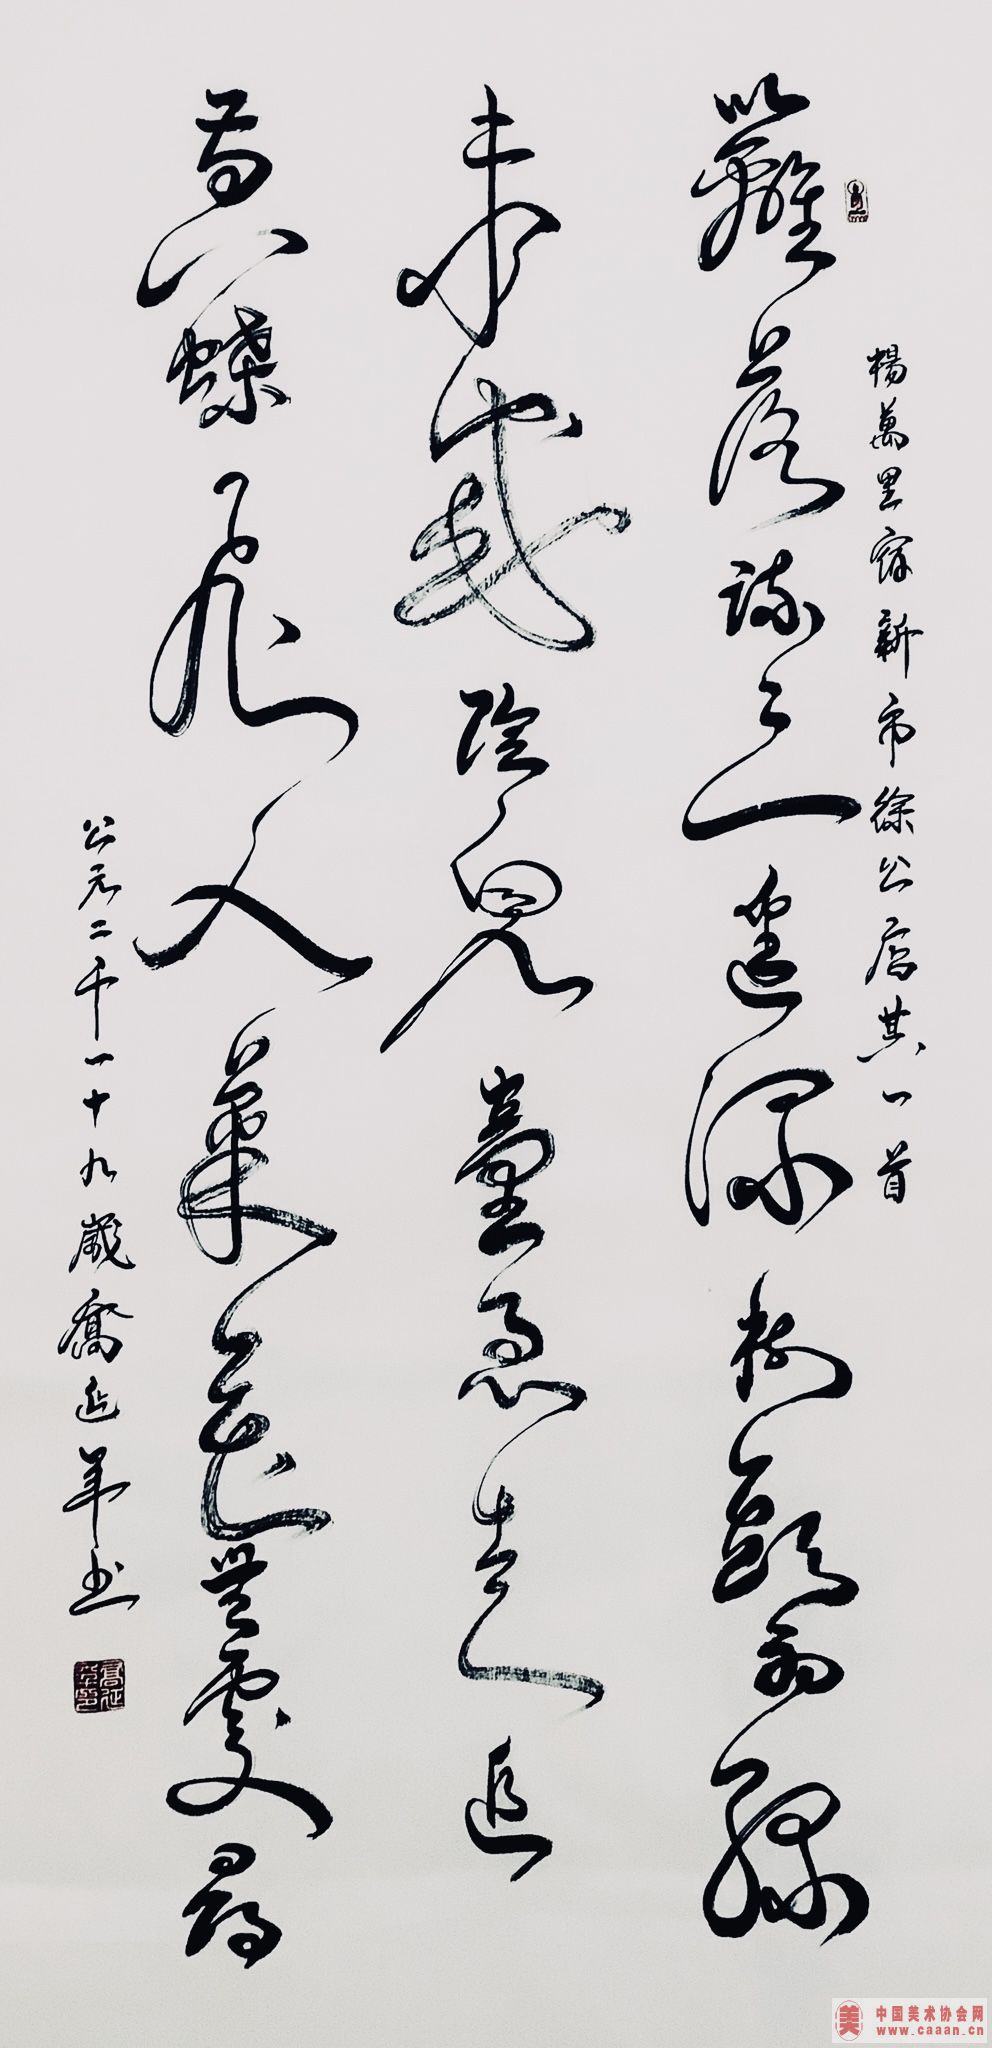 楊萬里宿新市徐公店其一首
籬落疏〻一逕深樹頭新綠
未成陰兒童急走追
黃蝶飛入菜花無處尋
公元二千一十九歲喬延軍书
美
中国美术协会网
www.caaan.cn